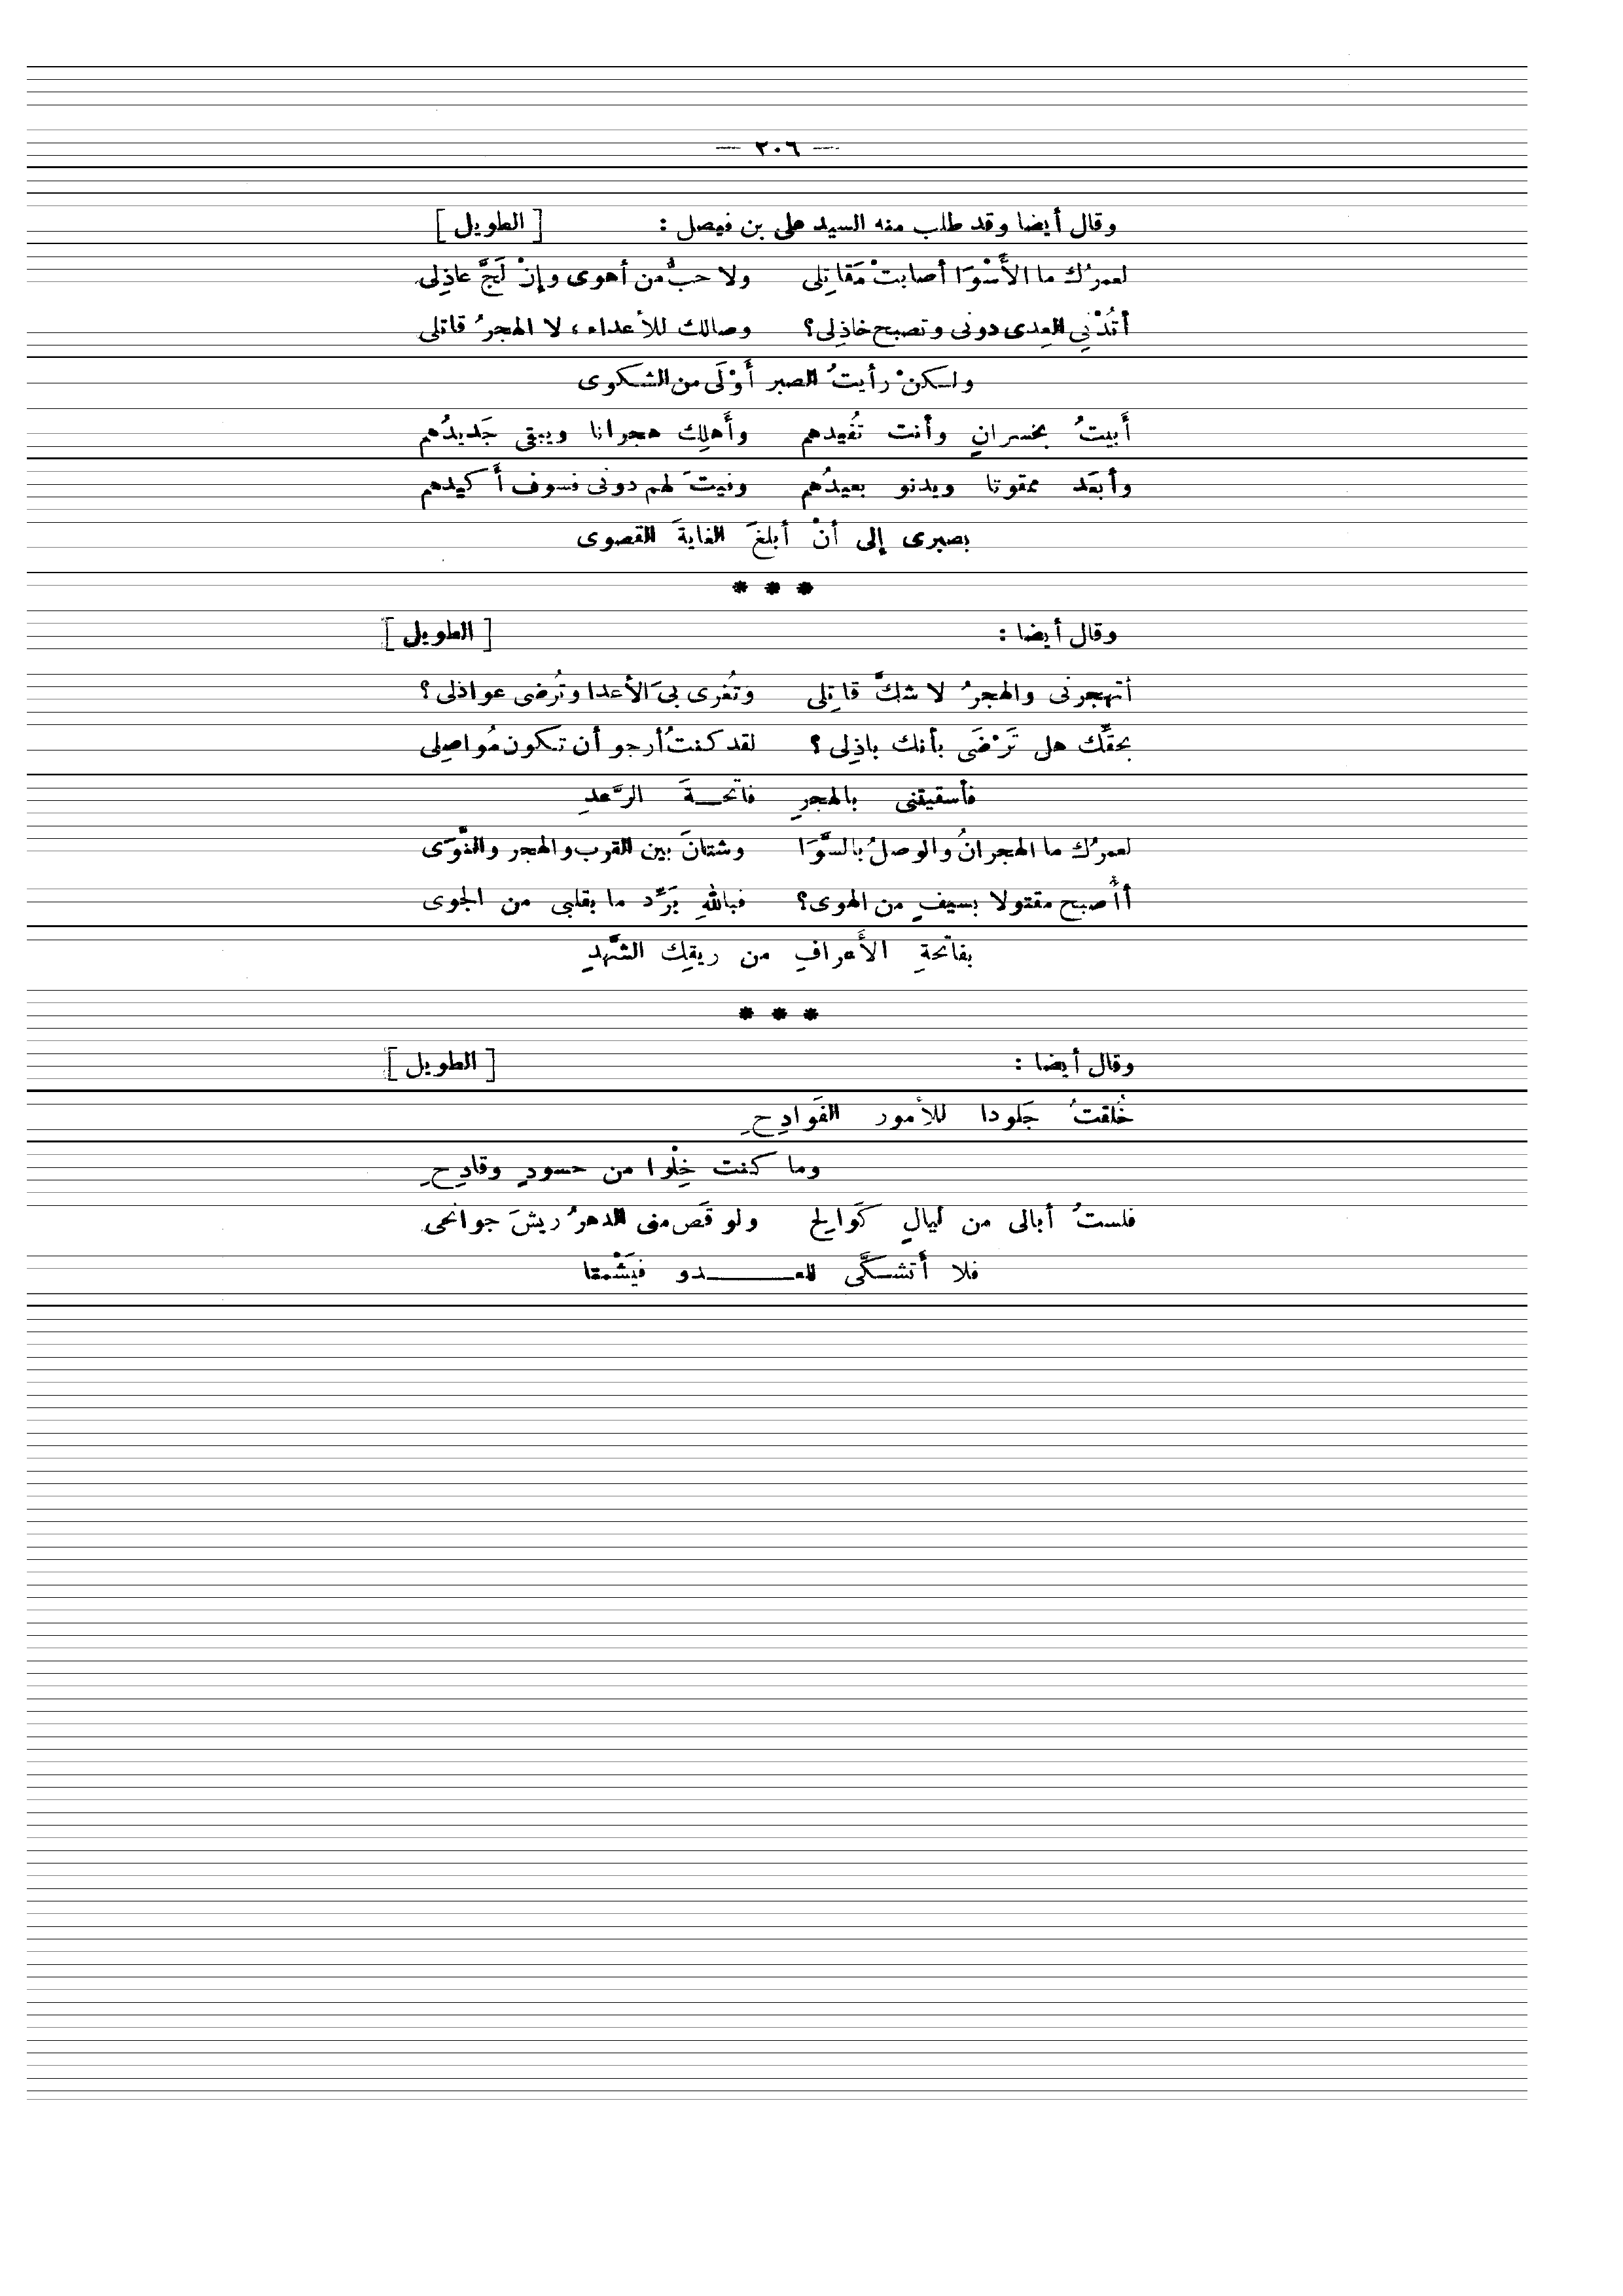 — ٢٠٦ —
وقال أيضا وقد طلب منه السيد على بن فيصل : [ الطويل ]
لعمرُك ما الأَسْوَا أصابتْ مَقاتِلى ولا حبُّ من أهوى وإنْ لَجَّ عاذِلى
أتُدْنِي العِدى دونى وتصبح خاذِلى؟ وصالك للأعداء ، لا الهجرُ قاتلى
ولكنْ رأيتُ الصبر أَوْلَى من الشكوى
أَبيتُ بخسرانٍ وأنت تُفيدهم وأَهلِك هجرانا ويبقى جَديدُهم
وأبعَد ممقوتا ويدنو بعيدُهم وفيتَ لهم دونى فسوف أَكيدهم
بصبرى إلى أنْ أبلغَ الغايةَ القصوى
* * *
وقال أيضا : [ الطويل ]
أتهجرنى والهجرُ لا شكَّ قاتِلى وتُغرى بىَ الأعدا وتُرضى عواذلى؟
بحقِّك هل تَرْضَى بأنك باذِلى؟ لقد كنتُ أرجو أن تكون مُواصِلى
فأسقيتنى بالهجرِ فاتحـــةَ الرَّعدِ
لعمرُك ما الهجرانُ والوصلُ بالسَّوَا وشتانَ بين القرب والهجر والنَّوَى
أأُصبح مقتولا بسيفٍ من الهوى؟ فباللهِ بَرِّد ما بقلبى من الجوى
بفاتحةِ الأَعرافِ من ريقِك الشَّهدِ
* * *
وقال أيضا : [ الطويل ]
خُلقتُ جَلودا للأمور الفَوادِحِ
وما كنت خِلْوا من حسودٍ وقادِحِ
فلستُ أبالى من ليالٍ كَوالِح ولو قَص منى الدهرُ ريشَ جوانحى
فلا أَتشكَّى للعـــــــدو فيَشْمتا